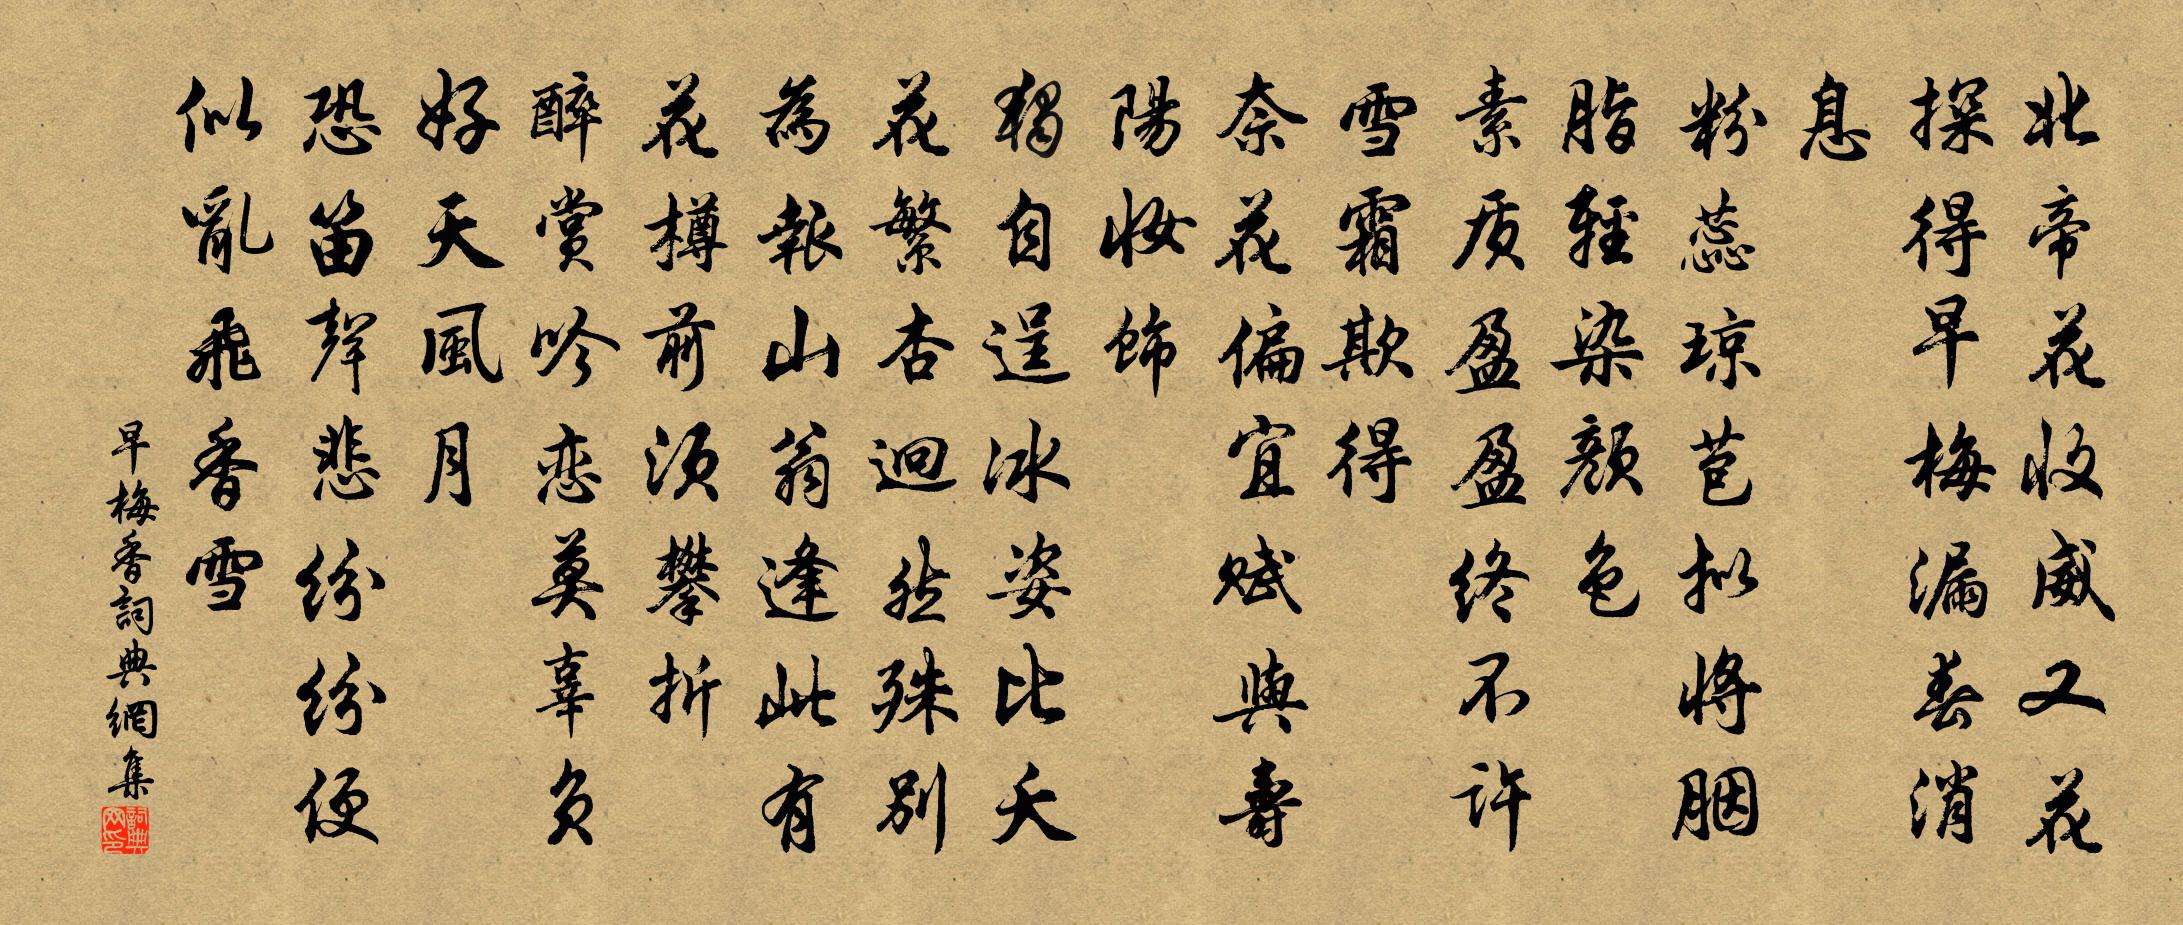 北帝花收威又花
探得早梅漏春消
息
粉蕊琼苞拟将胭
脂輕染颜色
素质盈盈终不许
雪霜欺得
奈花偏宜赋與壽
陽妆饰
獨自逞冰姿比夭
花繁杏迥然殊别
為報山翁逢此有
花樽前須攀折
醉賞吟恋莫辜负
好天風月
恐笛聲悲纷纷便
似亂飛香雪
早梅香詞典網集
詞典网印